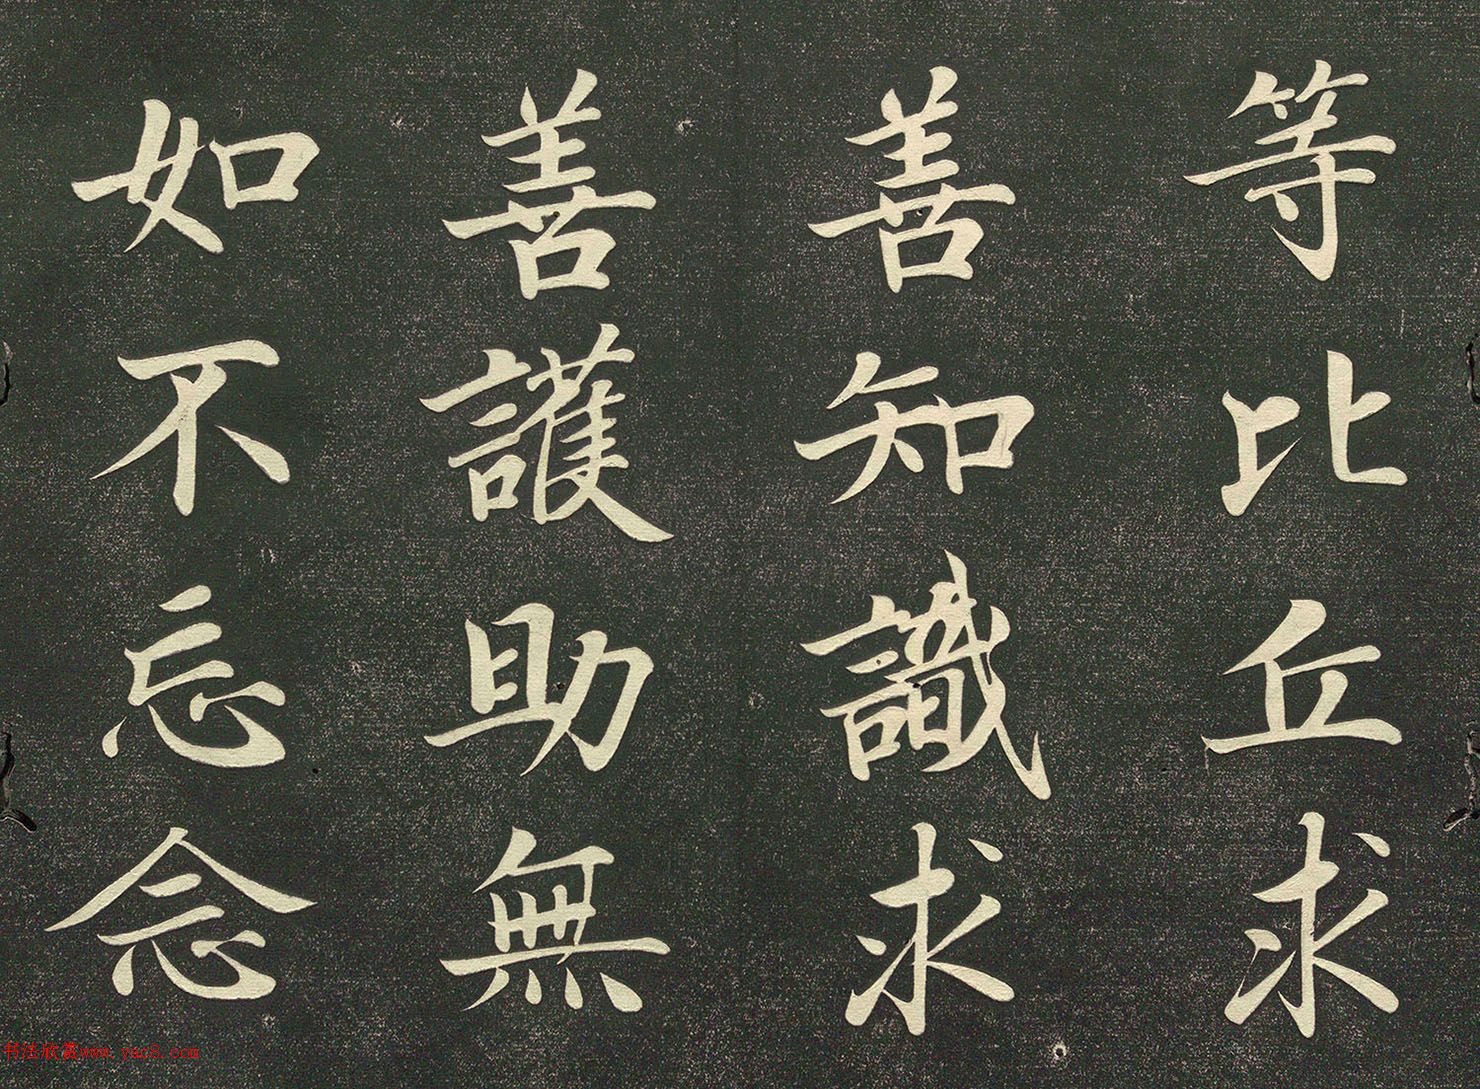 等比丘求
善知識求
善護助無
如不忘念
书法欣赏www.yac8.com